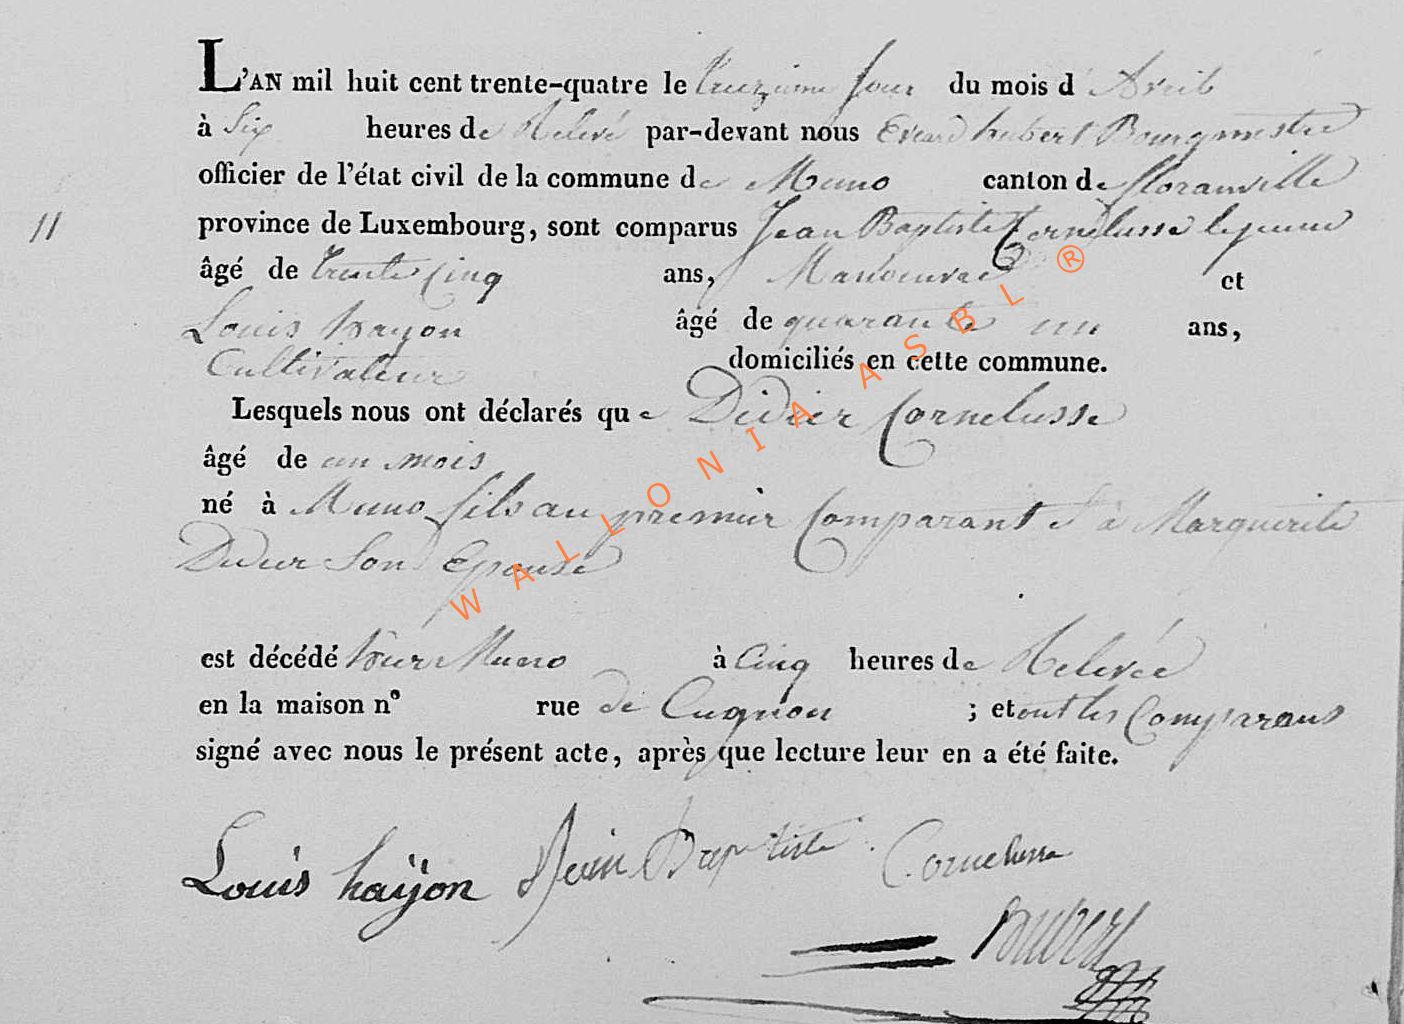 L'AN mil huit cent trente-quatre le treizieme jour du mois d'Avril
à Six heures de Relevé par-devant nous Evrard hubert Bourgmestre
officier de l'état civil de la commune de Muno canton de floranville
11 province de Luxembourg, sont comparus Jean Baptiste Cornelusse le jeune
âgé de trente cinq ans, Manoeuvre et
Louis hayon âgé de quarante un ans,
Cultivateur domiciliés en cette commune.
Lesquels nous ont déclarés que Didier Cornelusse
âgé de un mois
né à Muno fils au premier Comparant et à Marguerite
Didier Son Epouse
est décédé hier Muno à Cinq heures de Relevée
en la maison nº rue de Cugnon ; et ont les Comparans
signé avec nous le présent acte, après que lecture leur en a été faite.
Louis haÿon Jean Baptiste Cornelusse
hubert
WALLONIA ASBL ®